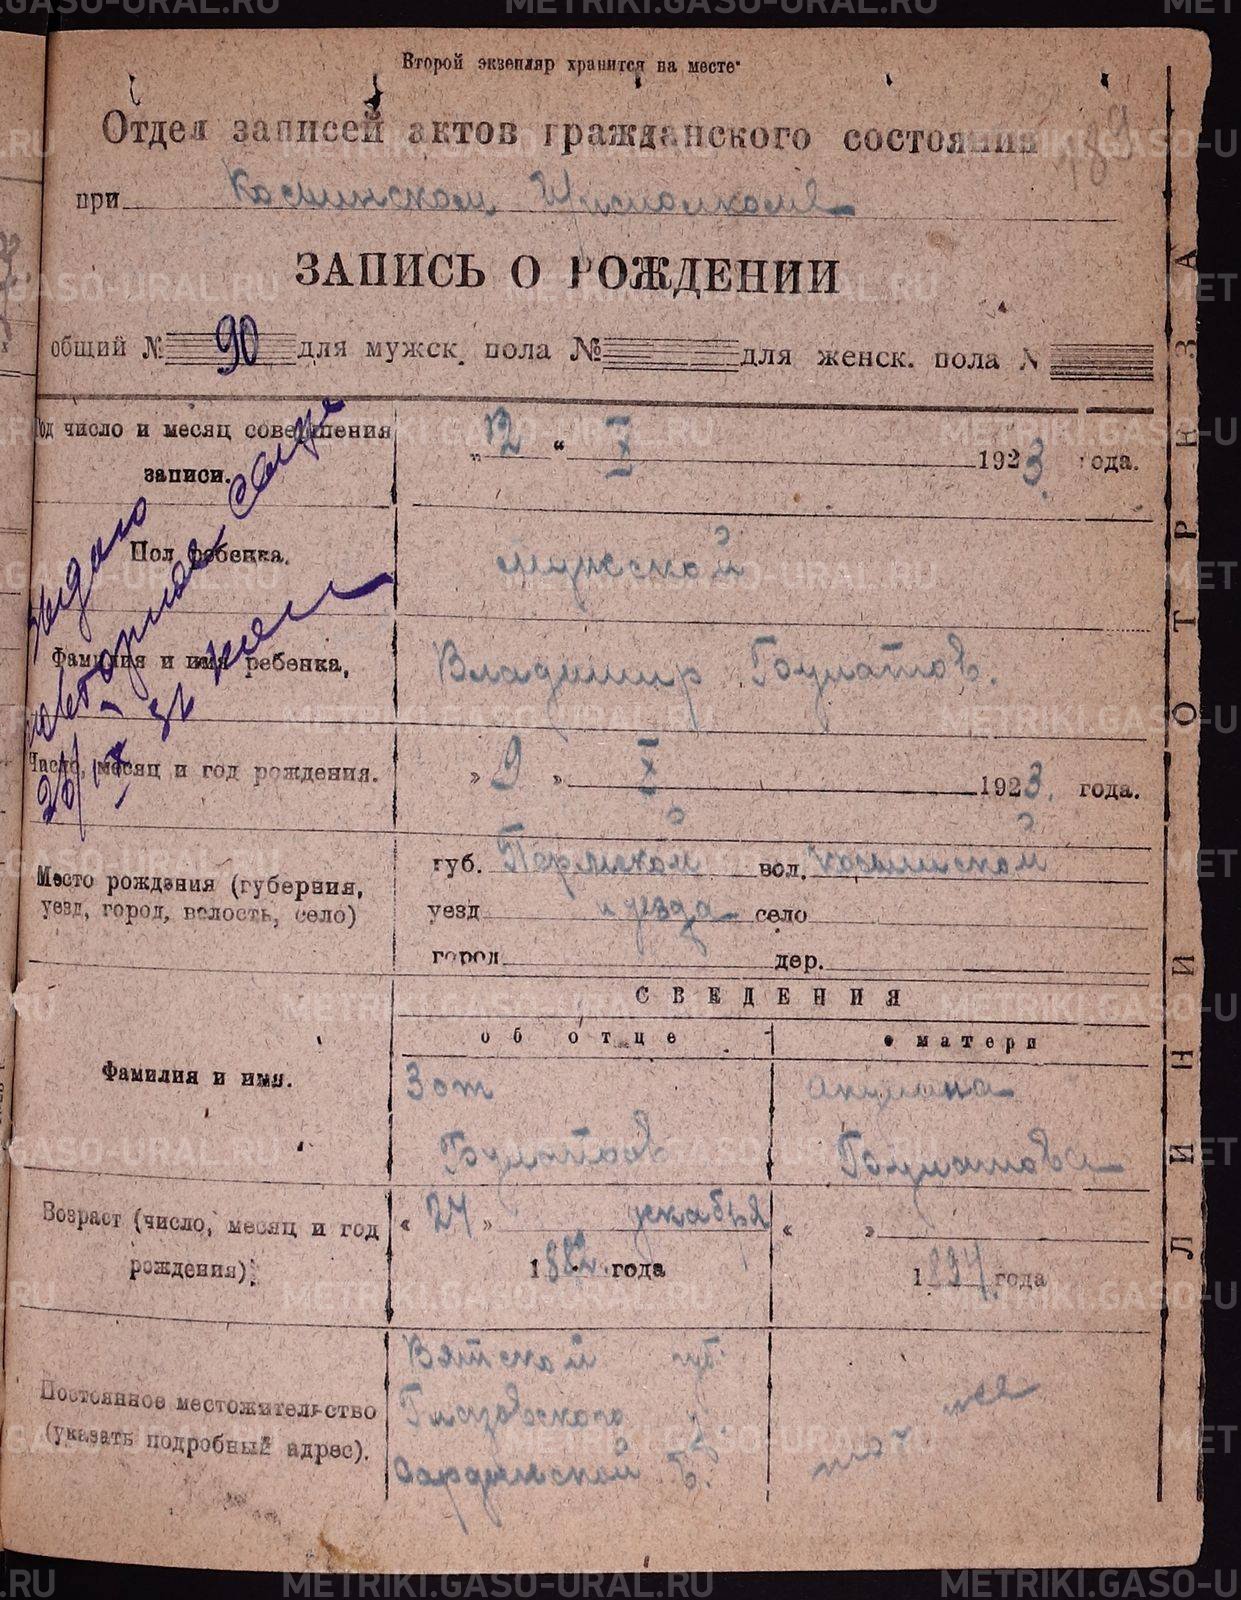 Второй экземпляр хранится на месте
189
Отдел записей актов гражданского состояния
при
ЗАПИСЬ О РОЖДЕНИИ
общий № 90 для мужск. пола № для женск. пола №
Год число и месяц совершения записи.
"12" X 1923. года.
Пол ребенка.
мужской
Фамилия и имя ребенка,
Владимир
Число, месяц и год рождения.
"9" X 1923. года.
Место рождения (губерния, уезд, город, волость, село)
губ. Пермской вол.
уезд и уезда село
город дер.
СВЕДЕНИЯ
об отце
о матери
Фамилия и имя.
Зот
Возраст (число, месяц и год рождения).
"24" декабря
" "
188 года
1894 года
Постоянное местожительство (указать подробный адрес).
Вятской губ.
Глазовского у.
там же
Выдано
повторное
26/IX 32
ЛИНИЯ ОТРЕЗА
METRIKI.GASO-URAL.RU